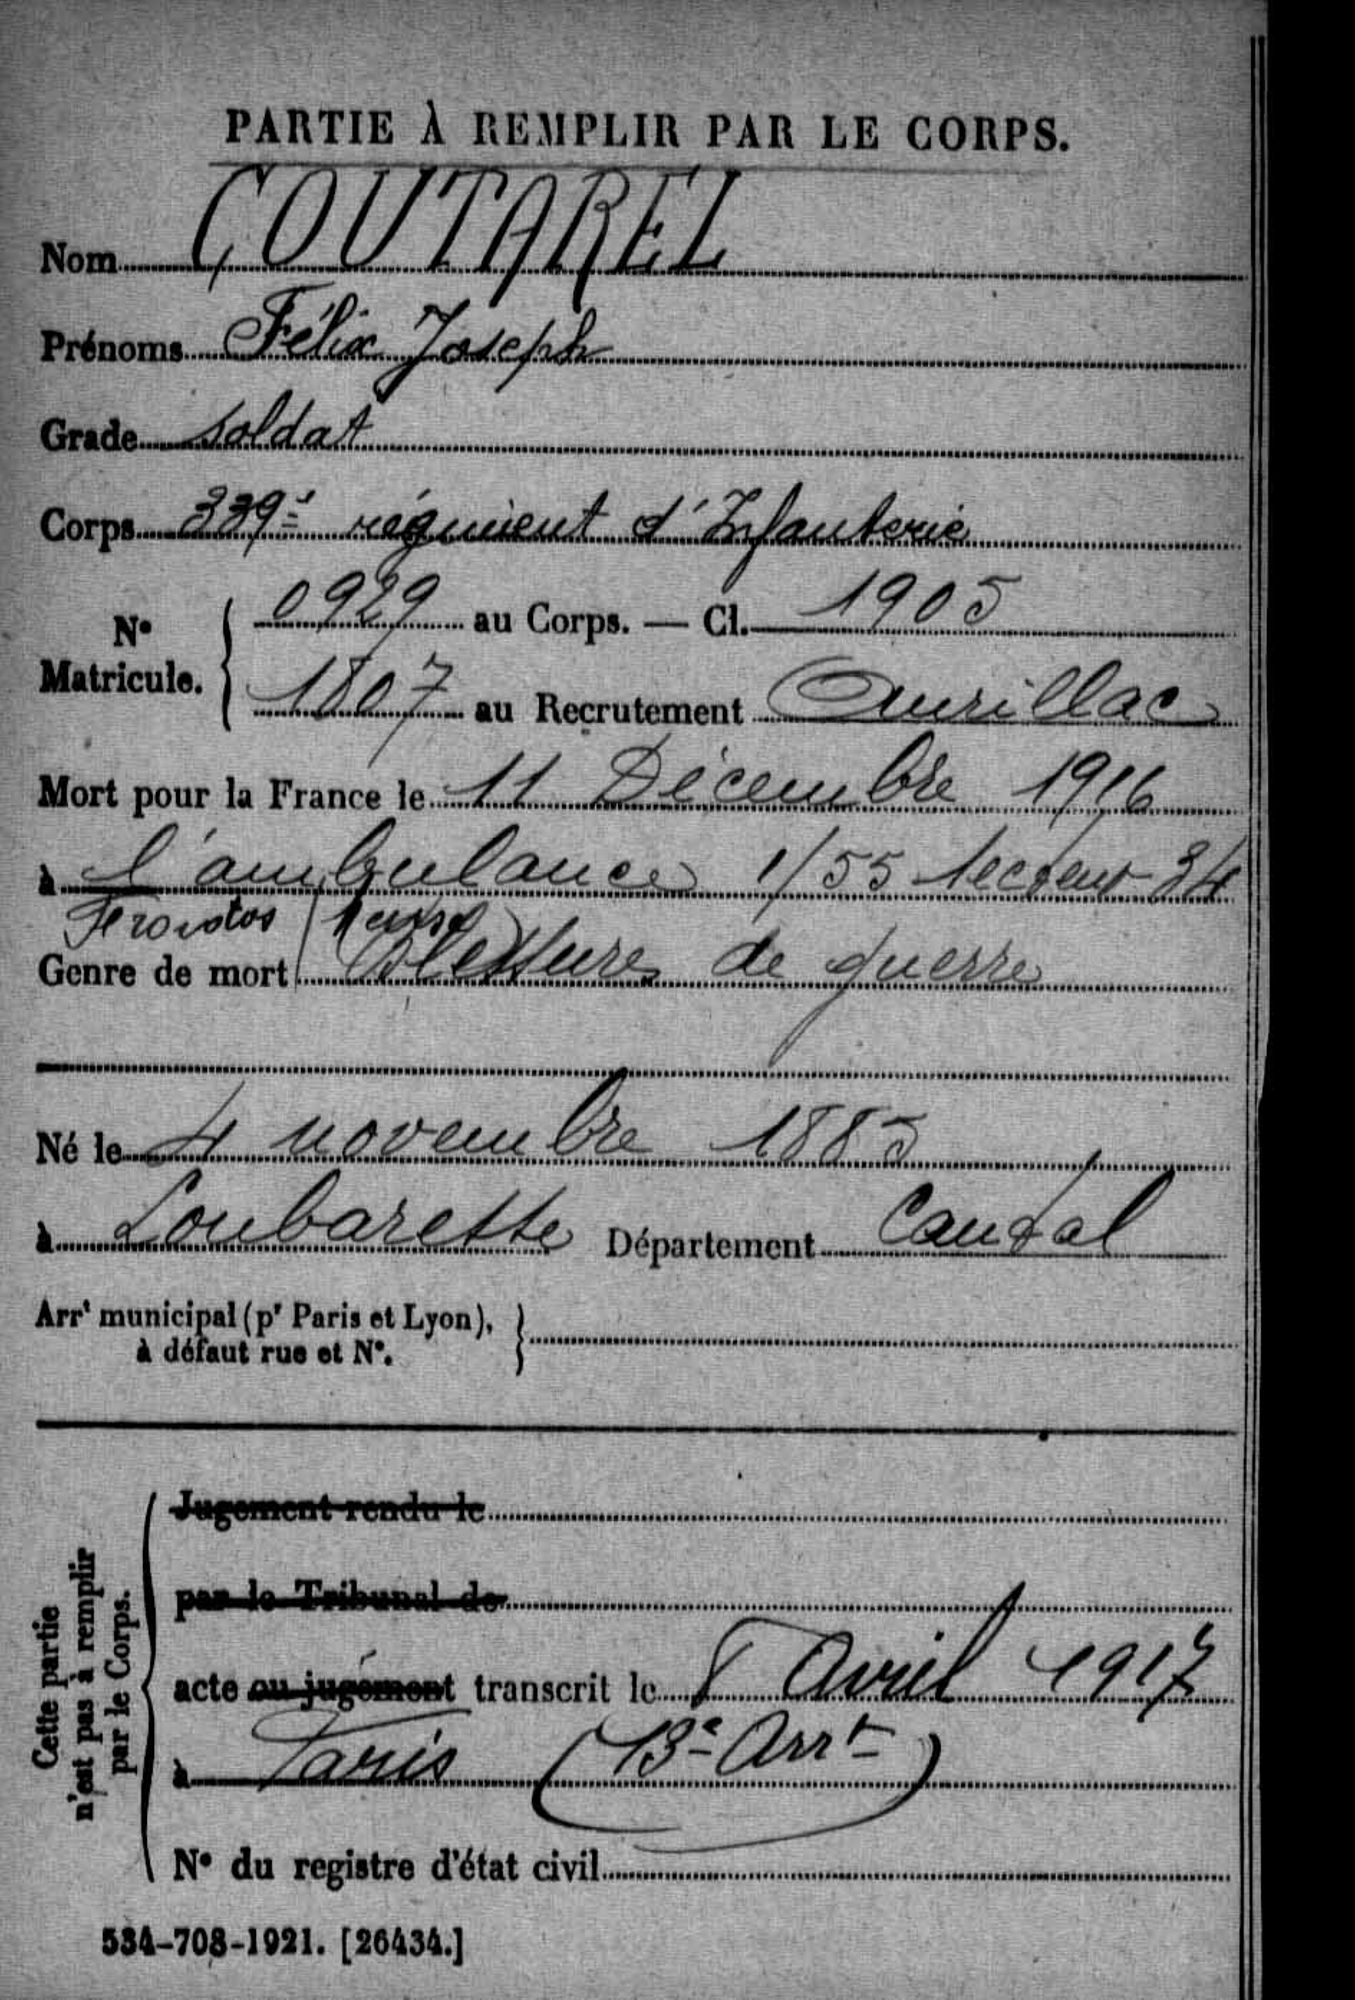 PARTIE À REMPLIR PAR LE CORPS.
Nom COUTAREL
Prénoms Félix Joseph
Grade soldat
Corps 339e régiment d'Infanterie
N° Matricule. 0929 au Corps. — Cl. 1905
1807 au Recrutement Aurillac
Mort pour la France le 11 Décembre 1916
à l'ambulance 1/55 secteur 34
Froidos Meuse
Genre de mort Blessures de guerre
Né le 4 novembre 1885
à Loubarette Département Cantal
Arrt municipal (pr Paris et Lyon),
à défaut rue et N°.
Cette partie
n'est pas à remplir
par le Corps.
Jugement rendu le
par le Tribunal de
acte ou jugement transcrit le 8 Avril 1917
à Paris (13e Arrt)
N° du registre d'état civil
534-708-1921. [26434.]